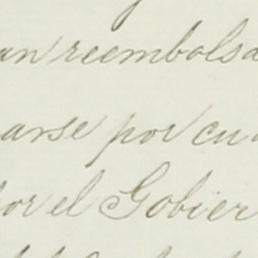 an reembolsa
arse por cu
por el Gobier